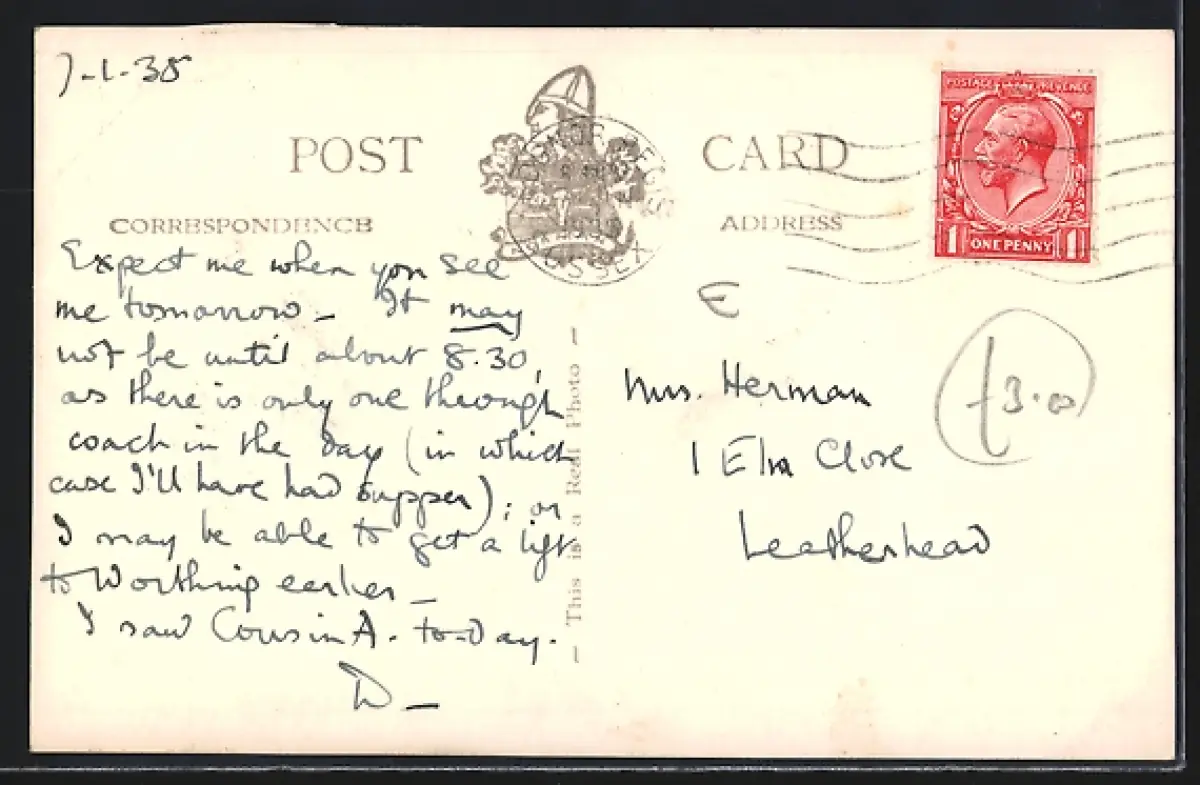 7-1-35
POST CARD
CORRESPONDENCE
ADDRESS
POSTAGE REVENUE
1 ONE PENNY 1
REGIS
SUSSEX
Expect me when you see
me tomorrow - It may
not be until about 8.30,
as there is only one through
coach in the day (in which
case I'll have had supper); or
I may be able to get a lift
to Worthing earlier -
I saw Cousin A. to-day.
D -
- This is a Real Photo -
E
Mrs. Herman
1 Elm Close
Leatherhead
£3.00